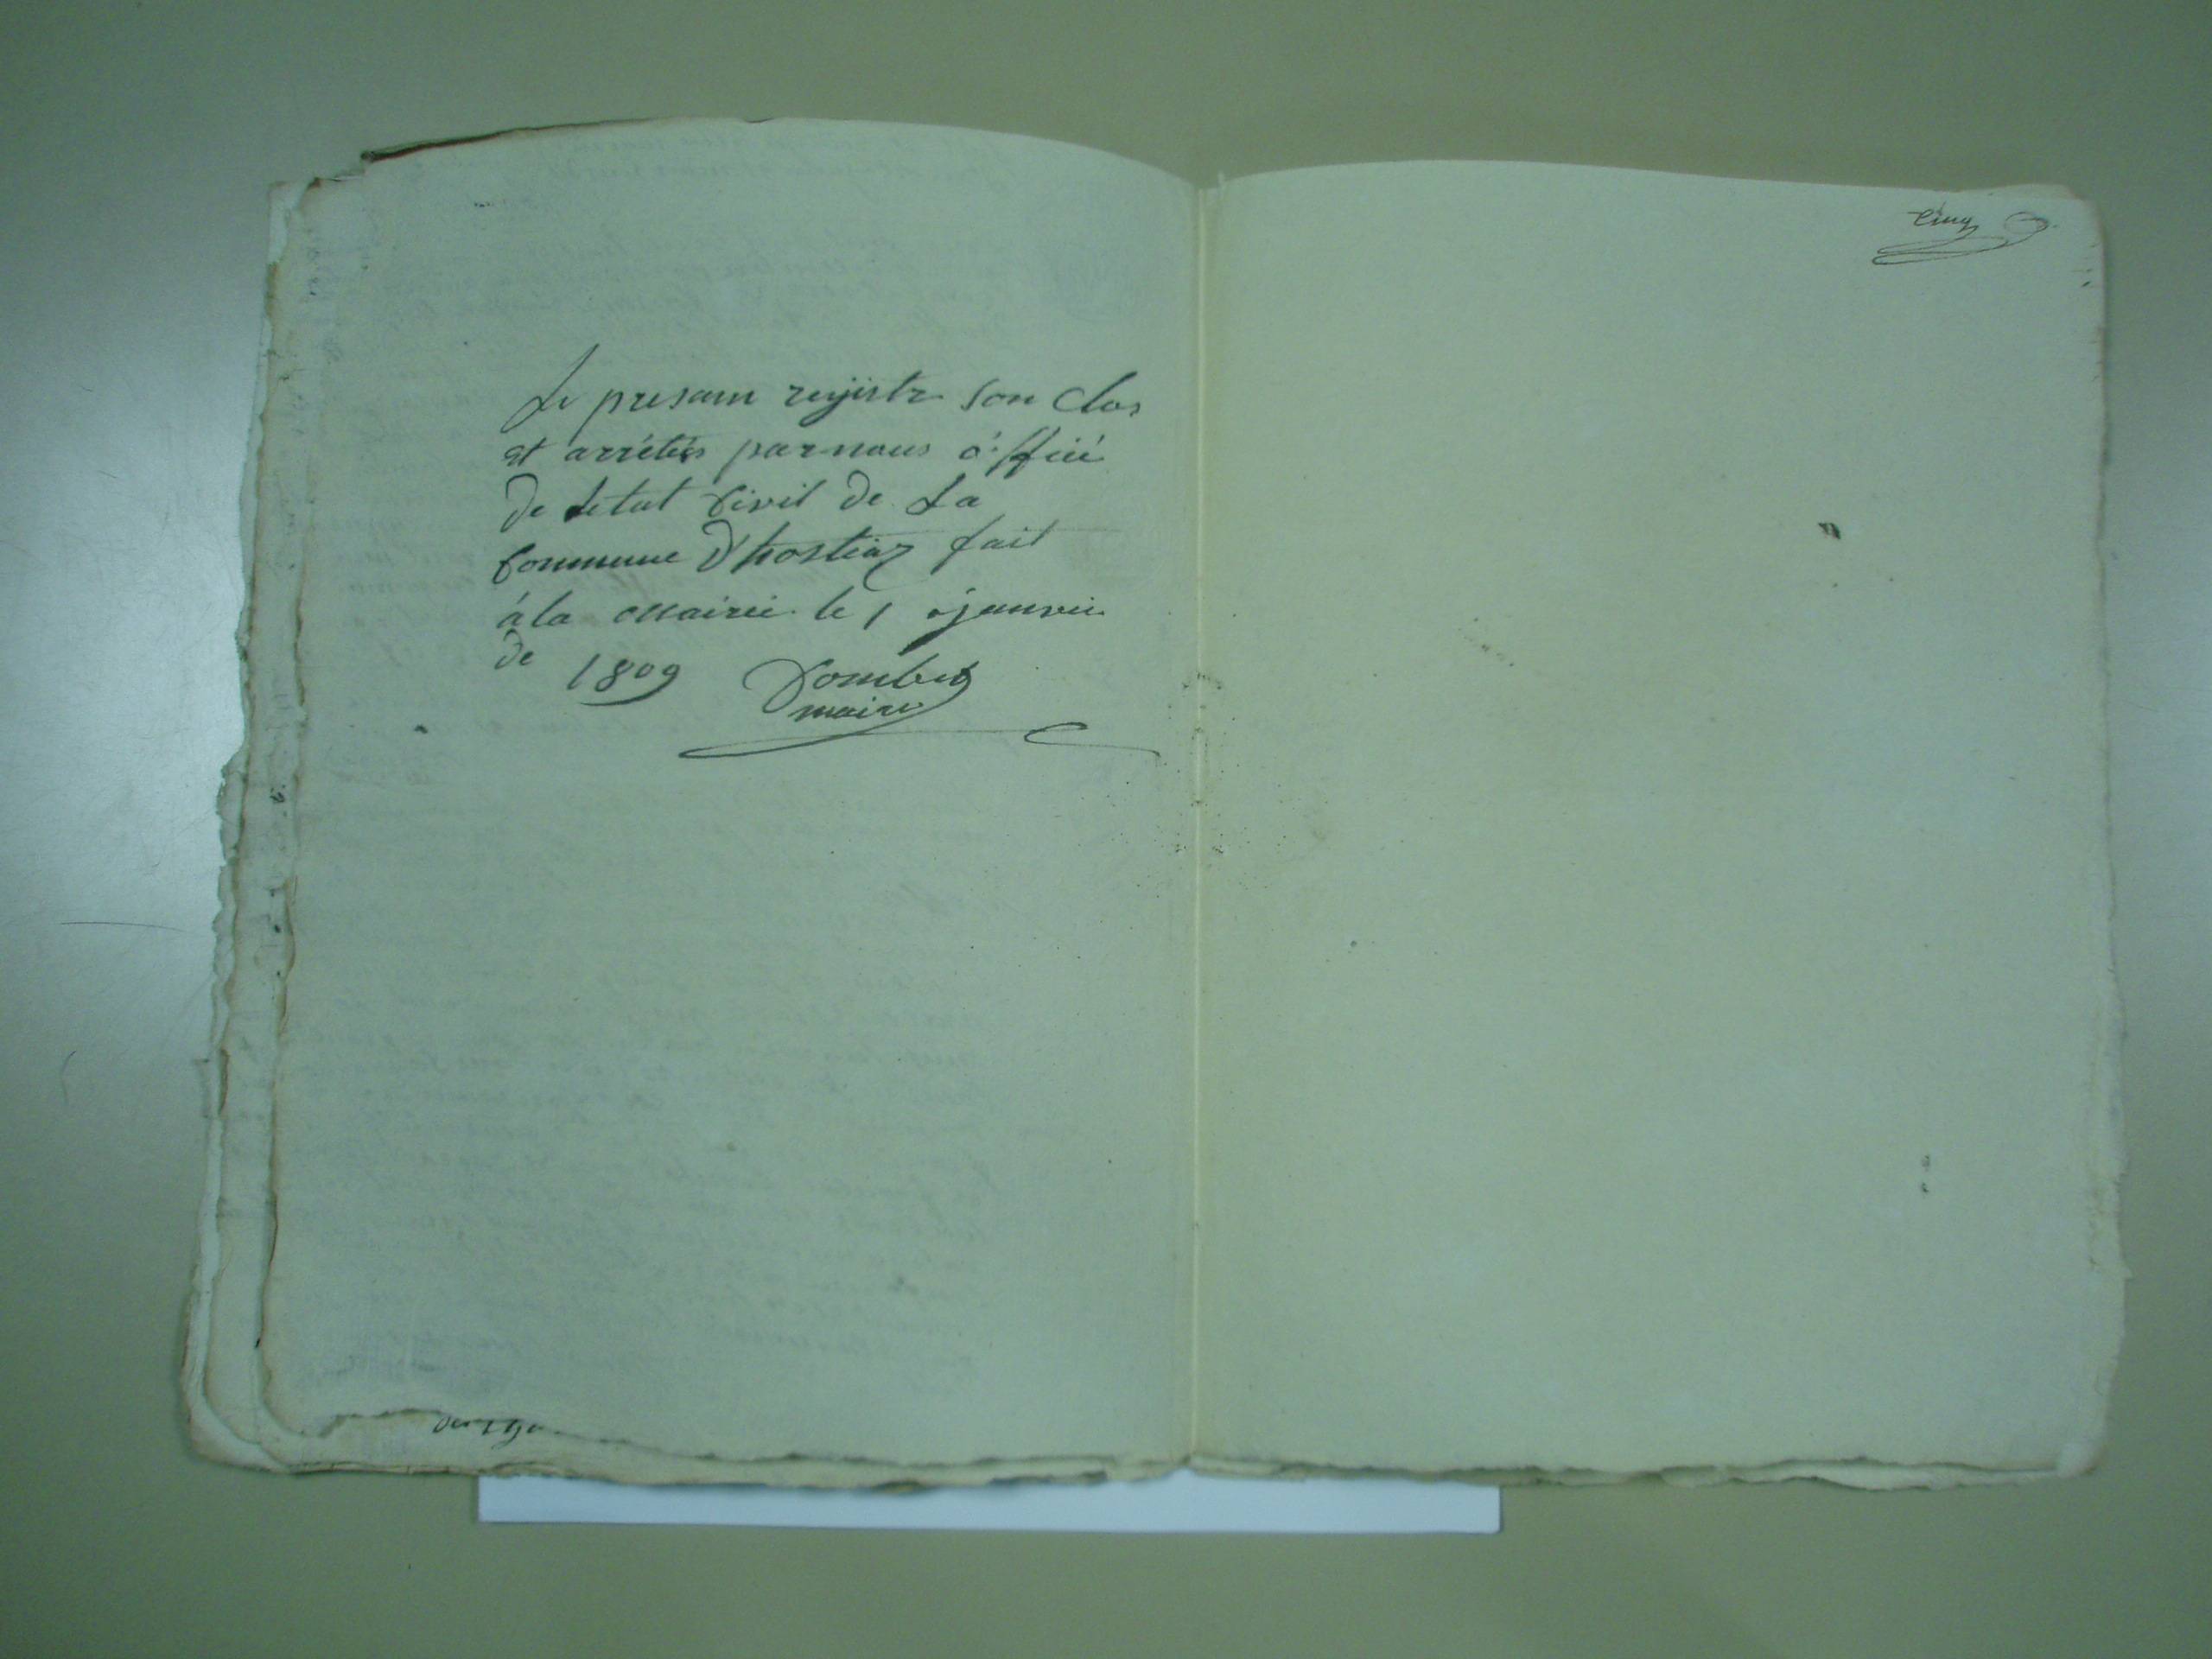 Le presam rejistr son clos
et arrétés par nous officié
de letat Civil de La
Commune D'hostiaz fait
à la Mairie le 1 janvié
de 1809 Dombet
maire
Cinq